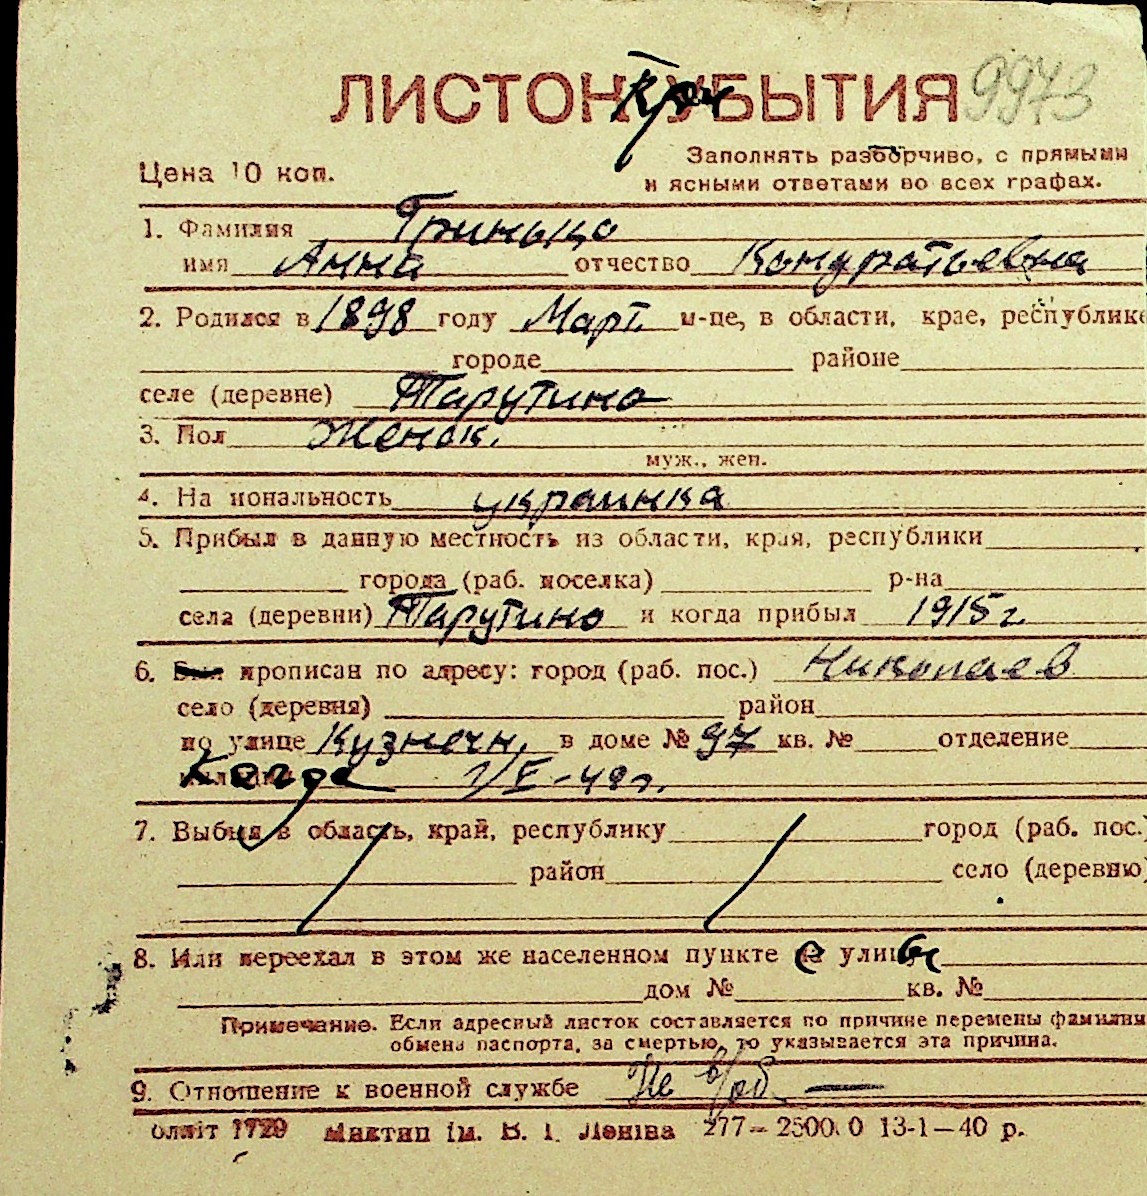 ЛИСТОК УБЫТИЯ 9973
Цена 10 коп.
Заполнять разборчиво, с прямыми
и ясными ответами во всех графах.
1. Фамилия Гринько
имя Анна отчество Кондратьевна
2. Родился в 1898 году Март м-це, в области, крае, республике
городе районе
селе (деревне) Тарутино
3. Пол Женск.
муж., жен.
4. Национальность украинка
5. Прибыл в данную местность из области, края, республики
города (раб. поселка) р-на
села (деревни) Тарутино и когда прибыл 1915 г.
6. Был прописан по адресу: город (раб. пос.) Николаев
село (деревня) район
по улице Кузнечн. в доме № 97 кв. № отделение
Когда 1/V-48 г.
7. Выбыл в область, край, республику город (раб. пос.)
район село (деревню)
8. Или переехал в этом же населенном пункте с улицы
дом № кв. №
Примечание. Если адресный листок составляется по причине перемены фамилии
обмена паспорта, за смертью, то указывается эта причина.
9. Отношение к военной службе Не в/об
блліт 1729 Миктип ім. В. І. Леніна 277—2500 0 13-1—40 р.